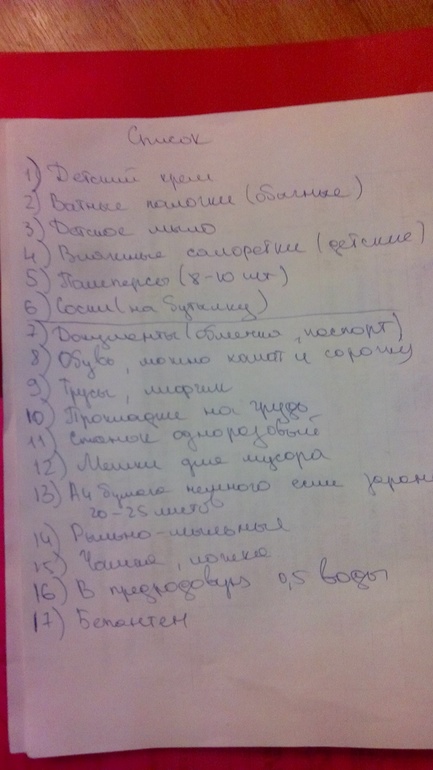 Список
1) Детский крем
2) Ватные палочки (обычные)
3) Детское мыло
4) Влажные салфетки (детские)
5) Памперсы (8-10 шт)
6) Соски (на бутылку)
7) Документы (обменка, паспорт)
8) Обувь, можно халат и сорочку
9) Трусы, лифчик
10) Прокладки на грудь
11) Станок одноразовый
12) Мешки для мусора
13) А4 бумага немного если заран
20-25 листов
14) Рыльно-мыльные
15) Чашка, ложка
16) В предродовую 0,5 воды
17) Бепантен